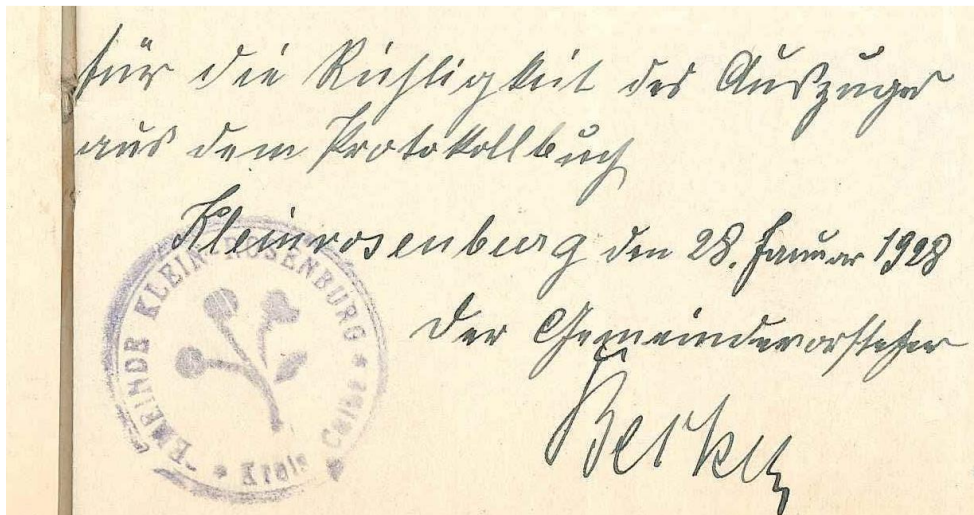 für die Richtigkeit des Auszuges
aus dem Protokollbuch
Kleinrosenburg den 28. Januar 1928
Der Gemeindevorsteher
GEMEINDE KLEIN-ROSENBURG
* Kreis Calbe *